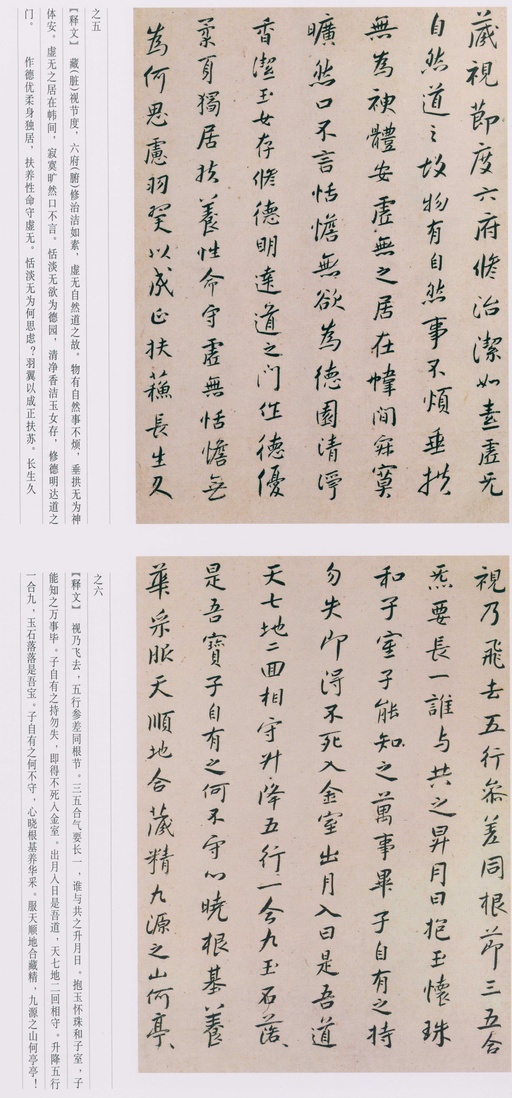 藏視節度六府脩治潔如素虛无
自然道之故物有自然事不煩垂拱
無為神體安虛無之居在幃間寂寞
曠然口不言恬憺無欲為德園清淨
香潔玉女存脩德明達道之門作德優
柔身獨居扶養性命守虛無恬憺無
為何思慮羽翼以成正扶蘓長生久
之五
【释文】 藏(脏)视节度，六府(腑)修治洁如素，虚无自然道之故。物有自然事不烦，垂拱无为神
体安。虚无之居在帏间，寂寞旷然口不言。恬淡无欲为德园，清净香洁玉女存，修德明达道之
门。 作德优柔身独居，扶养性命守虚无。恬淡无为何思虑？羽翼以成正扶苏。长生久
視乃飛去五行叅差同根節三五合
炁要長一誰与共之昇月日抱玉懷珠
和子室子能知之萬事畢子自有之持
勿失即得不死入金室出月入日是吾道
天七地二回相守升降五行一合九玉石落々
是吾寶子自有之何不守心曉根基養
華采服天順地合藏精九源之山何亭々
之六
【释文】 视乃飞去，五行参差同根节。三五合气要长一，谁与共之升月日。抱玉怀珠和子室，子
能知之万事毕。子自有之持勿失，即得不死入金室。出月入日是吾道，天七地二回相守。升降五行
一合九，玉石落落是吾宝。子自有之何不守，心晓根基养华采。服天顺地合藏精，九源之山何亭亭！